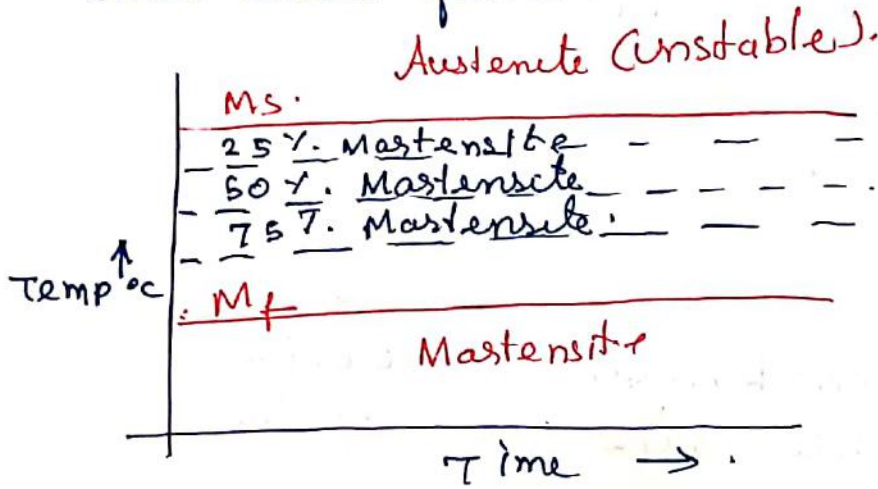 Austenite (Unstable).
Ms.
25 %. Martensite
50 %. Martensite
75 %. Martensite.
Temp °C
Mf
Martensite
Time